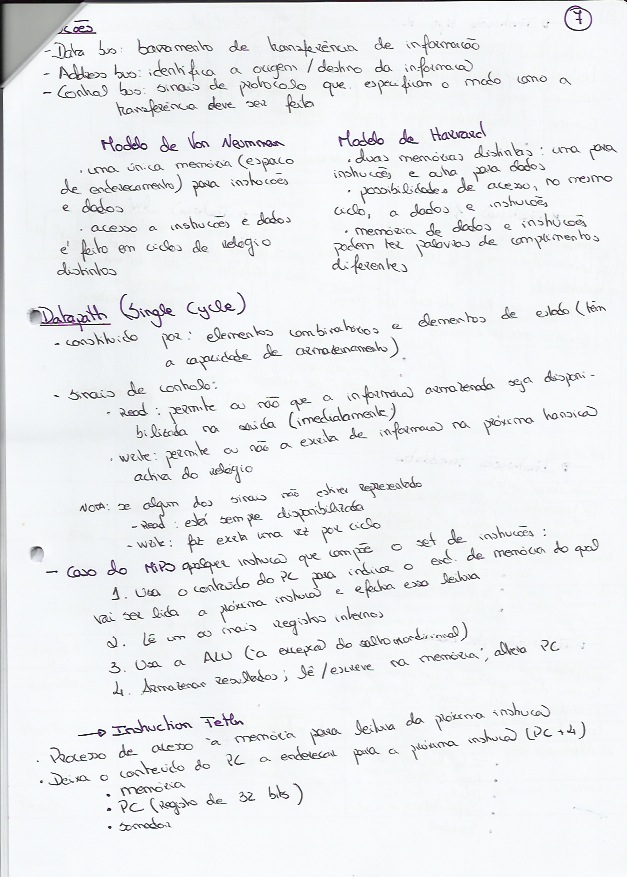 ções
7
- Data bus: barramento de transferência de informação
- Address bus: identifica a origem / destino da informaca
- Control bus: sinais de protocolo que especificam o modo como a
transferência deve ser feita
Modelo de Von Neumman
· uma única memória (espaço
de endereçamento) para instruções
e dados
· acesso a instruções e dados
é feito em ciclos de relógio
distintos
Modelo de Harvard
· duas memórias distintas: uma para
instruções e outra para dados
· possibilidades de acesso, no mesmo
ciclo, a dados e instruções
· memória de dados e instruções
podem ter palavras de comprimentos
diferentes
Datapath (Single Cycle)
- constituído por: elementos combinatórios e elementos de estado (têm
a capacidade de armazenamento)
- sinais de controlo:
· Read: permite ou não que a informaca armazenada seja disponi-
bilizada na saída (imediatamente)
· write: permite ou não a escrita de informaca na próxima transica
activa do relógio
NOTA: se algum dos sinais não estiver representado
- Read: está sempre disponibilizada
- write: faz escrita uma vez por ciclo
- Caso do MIPS qualquer instruca que compõe o set de instruções:
1. Usa o conteúdo do PC para indicar o end. de memória do qual
vai ser lida a próxima instruca e efectua essa leitura
2. Lê um ou mais registos internos
3. Usa a ALU (à excepca do salto incondicional)
4. Armazenar resultados; lê/escreve na memória; altera PC
→ Instruction Fetch
· Processo de acesso à memória para leitura da próxima instruca
· Deixa o conteúdo do PC a endereçar para a próxima instruca (PC+4)
· memória
· PC (registo de 32 bits)
· somador